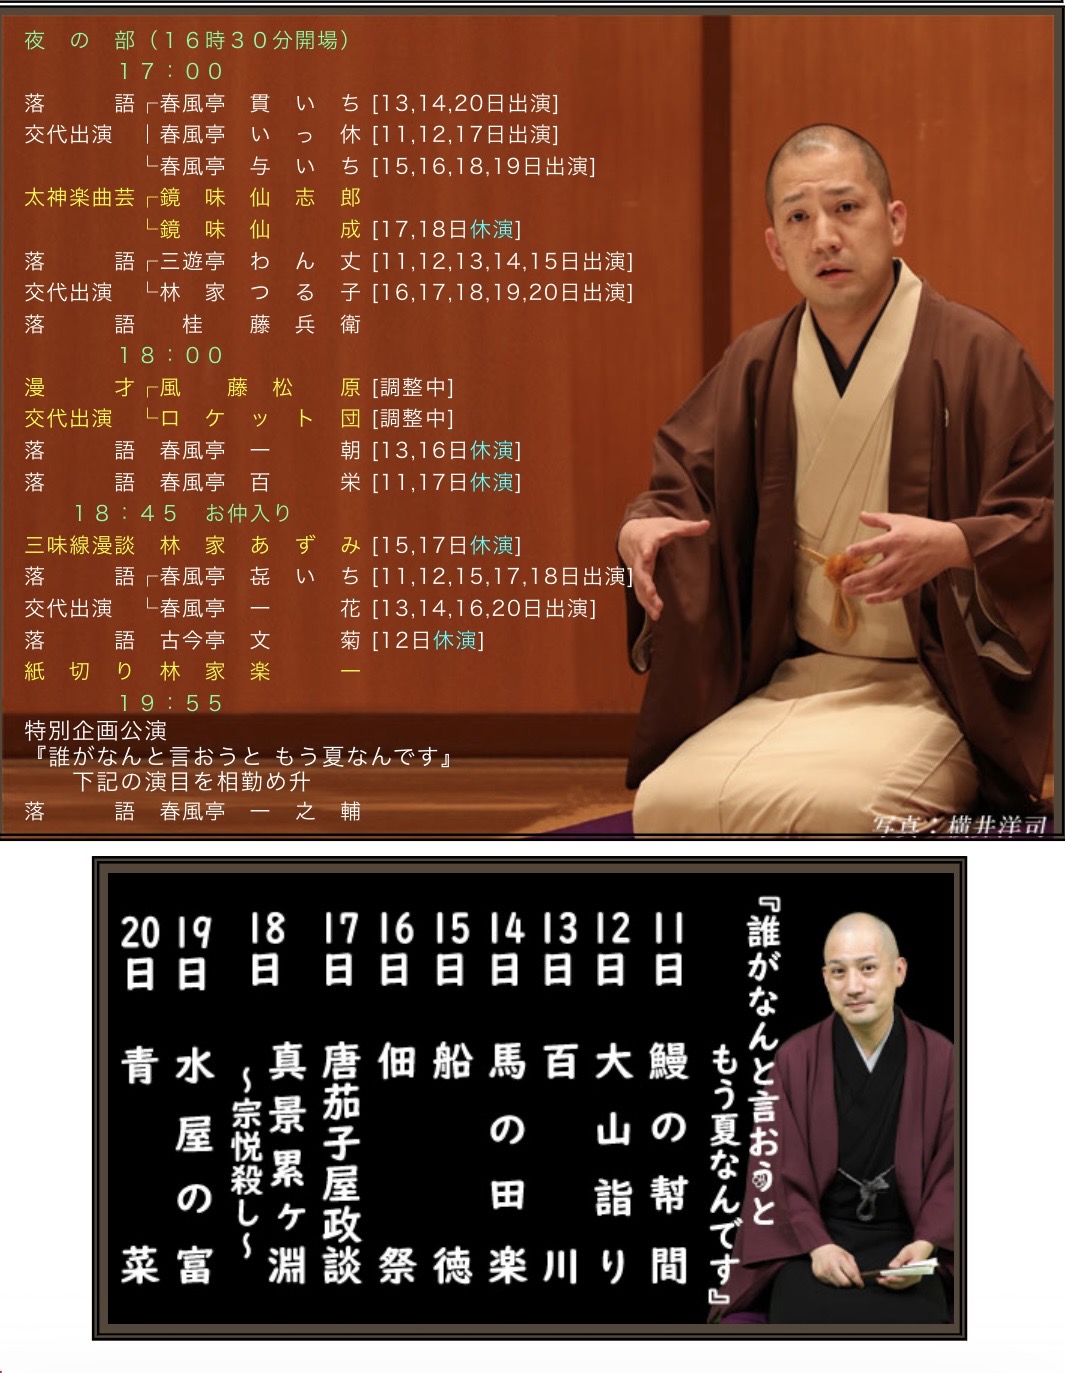 夜の部（１６時３０分開場）
１７：００
落語┌春風亭貫いち [13,14,20日出演]
交代出演｜春風亭いっ休 [11,12,17日出演]
└春風亭与いち [15,16,18,19日出演]
太神楽曲芸┌鏡味仙志郎
└鏡味仙成 [17,18日休演]
落語┌三遊亭わん丈 [11,12,13,14,15日出演]
交代出演└林家つる子 [16,17,18,19,20日出演]
落語 桂藤兵衛
１８：００
漫才┌風藤松原 [調整中]
交代出演└ロケット団 [調整中]
落語 春風亭一朝 [13,16日休演]
落語 春風亭百栄 [11,17日休演]
１８：４５ お仲入り
三味線漫談 林家あずみ [15,17日休演]
落語┌春風亭㐂いち [11,12,15,17,18日出演]
交代出演└春風亭一花 [13,14,16,20日出演]
落語 古今亭文菊 [12日休演]
紙切り 林家楽一
１９：５５
特別企画公演
『誰がなんと言おうと もう夏なんです』
下記の演目を相勤め升
落語 春風亭一之輔
写真：横井洋司
『誰がなんと言おうと
もう夏なんです』
11日 鰻の幇間
12日 大山詣り
13日 百川
14日 馬の田楽
15日 船徳
16日 佃祭
17日 唐茄子屋政談
18日 真景累ケ淵
～宗悦殺し～
19日 水屋の富
20日 青菜